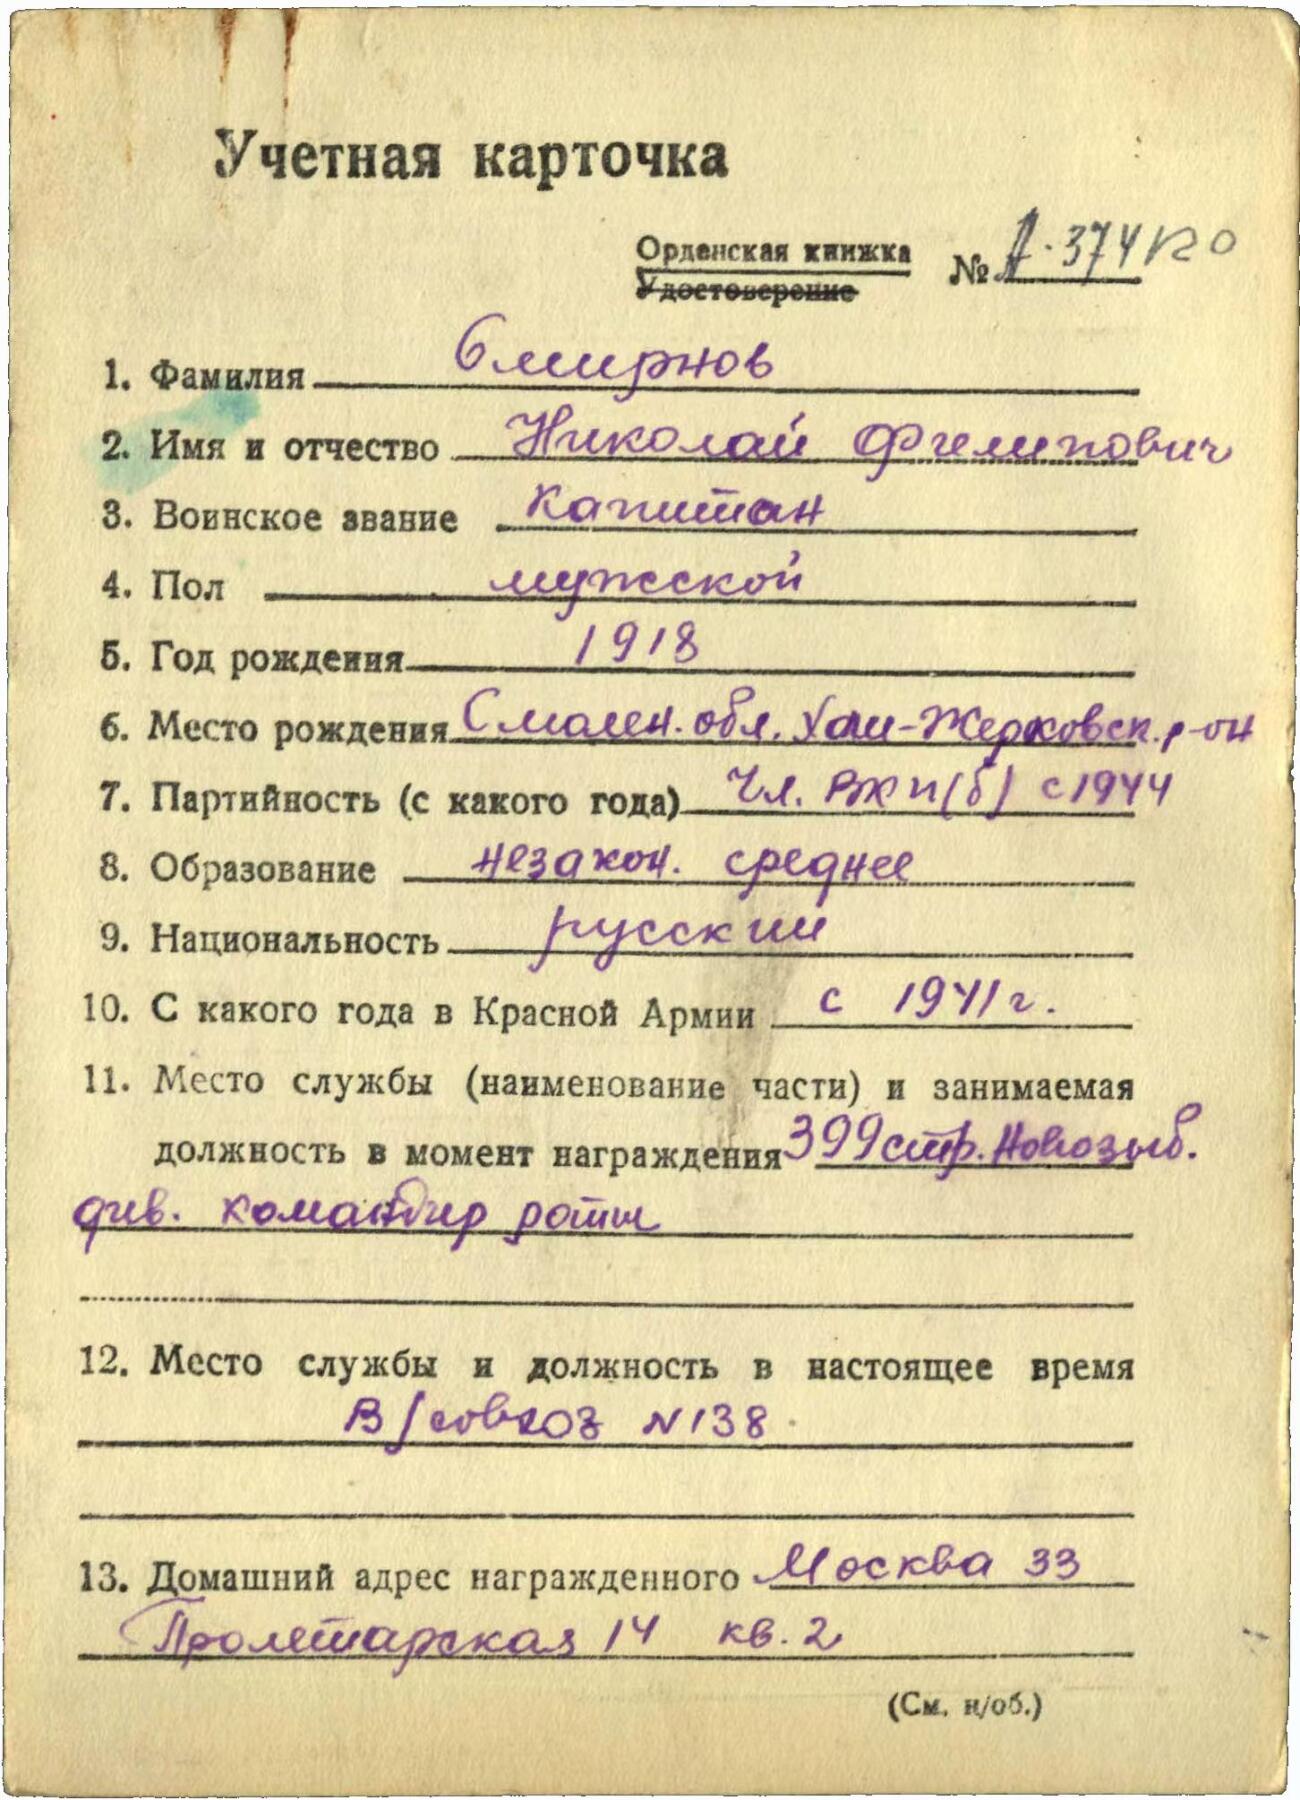 Учетная карточка
Орденская книжка № А-374120
Удостоверение
1. Фамилия Смирнов
2. Имя и отчество Николай Филипович
3. Воинское звание капитан
4. Пол мужской
5. Год рождения 1918
6. Место рождения Смолен. обл. р-он
7. Партийность (с какого года) Чл. ВКП(б) с 1944
8. Образование незакон. среднее
9. Национальность русский
10. С какого года в Красной Армии с 1941 г.
11. Место службы (наименование части) и занимаемая
должность в момент награждения 399 стр. Новозыб.
див. командир роты
12. Место службы и должность в настоящее время
В/совхоз N 138
13. Домашний адрес награжденного Москва 33
Пролетарская 14 кв. 2
(См. н/об.)